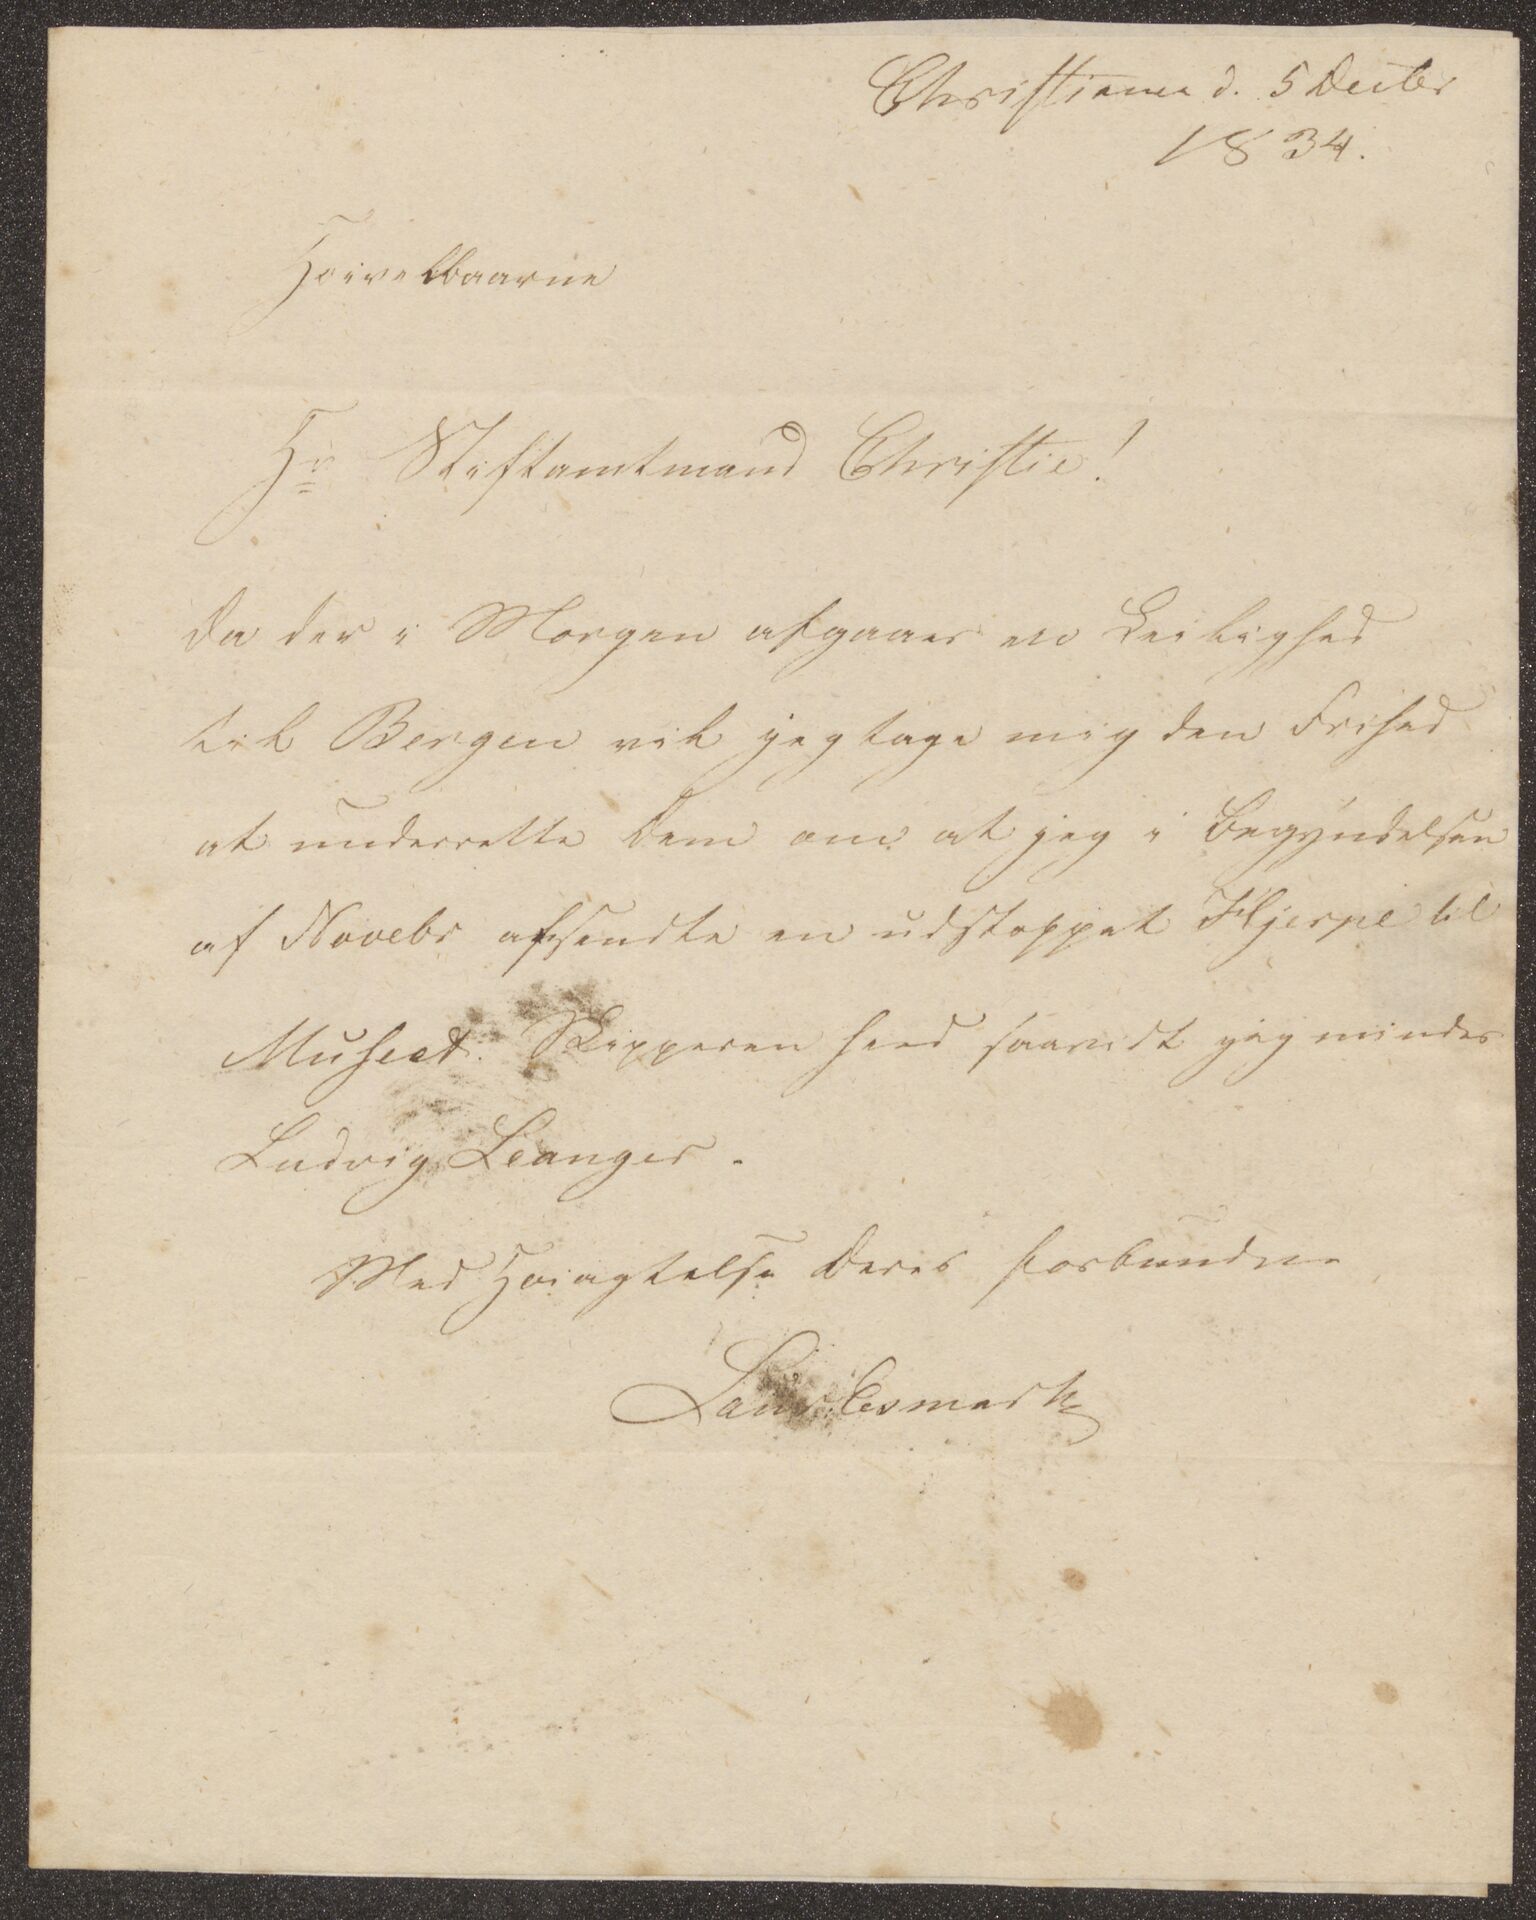 Christiania d. 5 Decbr
1834.
Høivelbaarne
Hr Stiftamtmand Christie!
Da der i Morgen afgaaer en Leilighed
til Bergen vil jeg tage mig den Frihed
at underrette Dem om at jeg i Begyndelsen
af Novebr afsendte en udstoppet Hjerpe til
Museet. Skipperen heed saavidt jeg mindes
Ludvig Leanger.
Med Høiagtelse Deres forbundne
Laur. Esmark